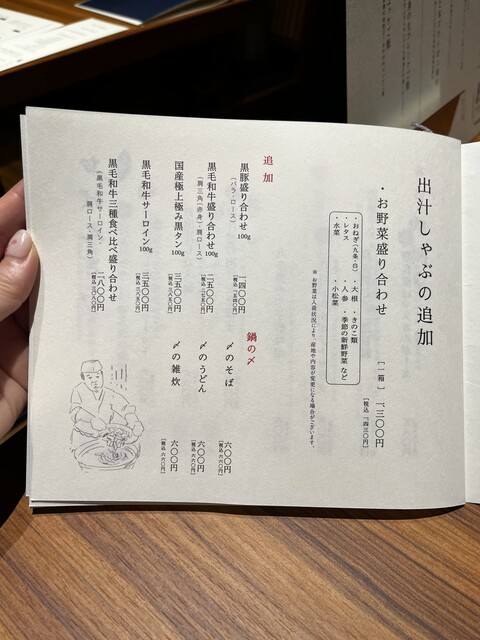 出汁しゃぶの追加
・お野菜盛り合わせ
［一箱］ 一、三〇〇円
［税込 一、四三〇円］
・おねぎ（九条・白） ・大根 ・きのこ類
・レタス ・人参 ・季節の新鮮野菜 など
・水菜 ・小松菜
※お野菜は入荷状況により、産地や内容が変更になる場合がございます。
追加
黒豚盛り合わせ 100g 一、四〇〇円
（バラ・ロース） ［税込 一、五四〇円］
黒毛和牛盛り合わせ 100g 二、五〇〇円
（肩三角（赤身）・肩ロース） ［税込 二、七五〇円］
国産極上極み黒タン 100g 三、五〇〇円
［税込 三、八五〇円］
黒毛和牛サーロイン 100g 三、五〇〇円
［税込 三、八五〇円］
黒毛和牛三種食べ比べ盛り合わせ 二、八〇〇円
（黒毛和牛サーロイン・肩ロース・肩三角） ［税込 三、〇八〇円］
鍋の〆
〆のそば 六〇〇円
［税込 六六〇円］
〆のうどん 六〇〇円
［税込 六六〇円］
〆の雑炊 六〇〇円
［税込 六六〇円］